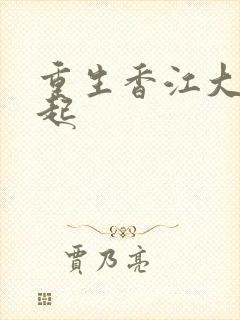 重生香江大
起
贾乃亮